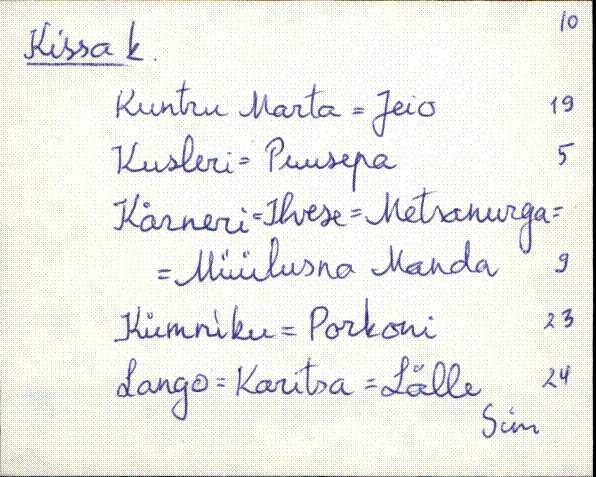 10
Kissa k.
Kuntru Marta = Jeio 19
Kusleri = Puusepa 5
Kärneri = Ilvese = Metsanurga =
= Müülusna Manda 9
Kümniku = Porkoni 23
Lango = Karitsa = Lälle 24
Sim